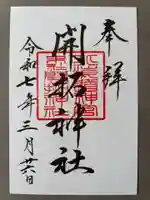 奉拝
開拓神社
令和七年三月廿六日